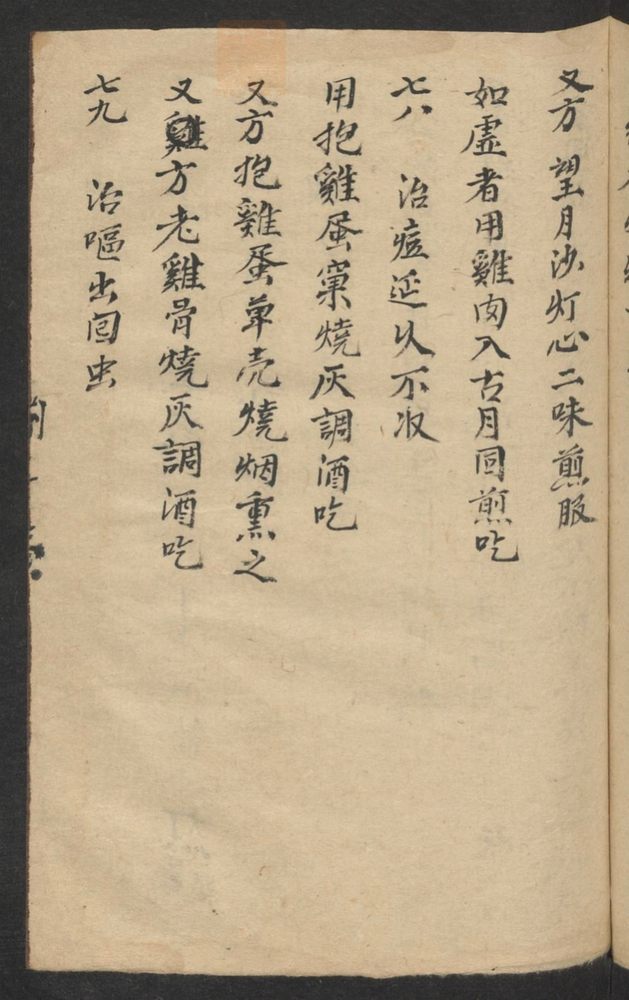 又方望月沙灯心二味煎服
如虛者用雞肉入古月同煎吃
七八 治痘延久不收
用抱雞蛋窠燒灰調酒吃
又方抱雞蛋單壳燒烟熏之
又雞方老雞骨燒灰調酒吃
七九 治嘔出囬虫